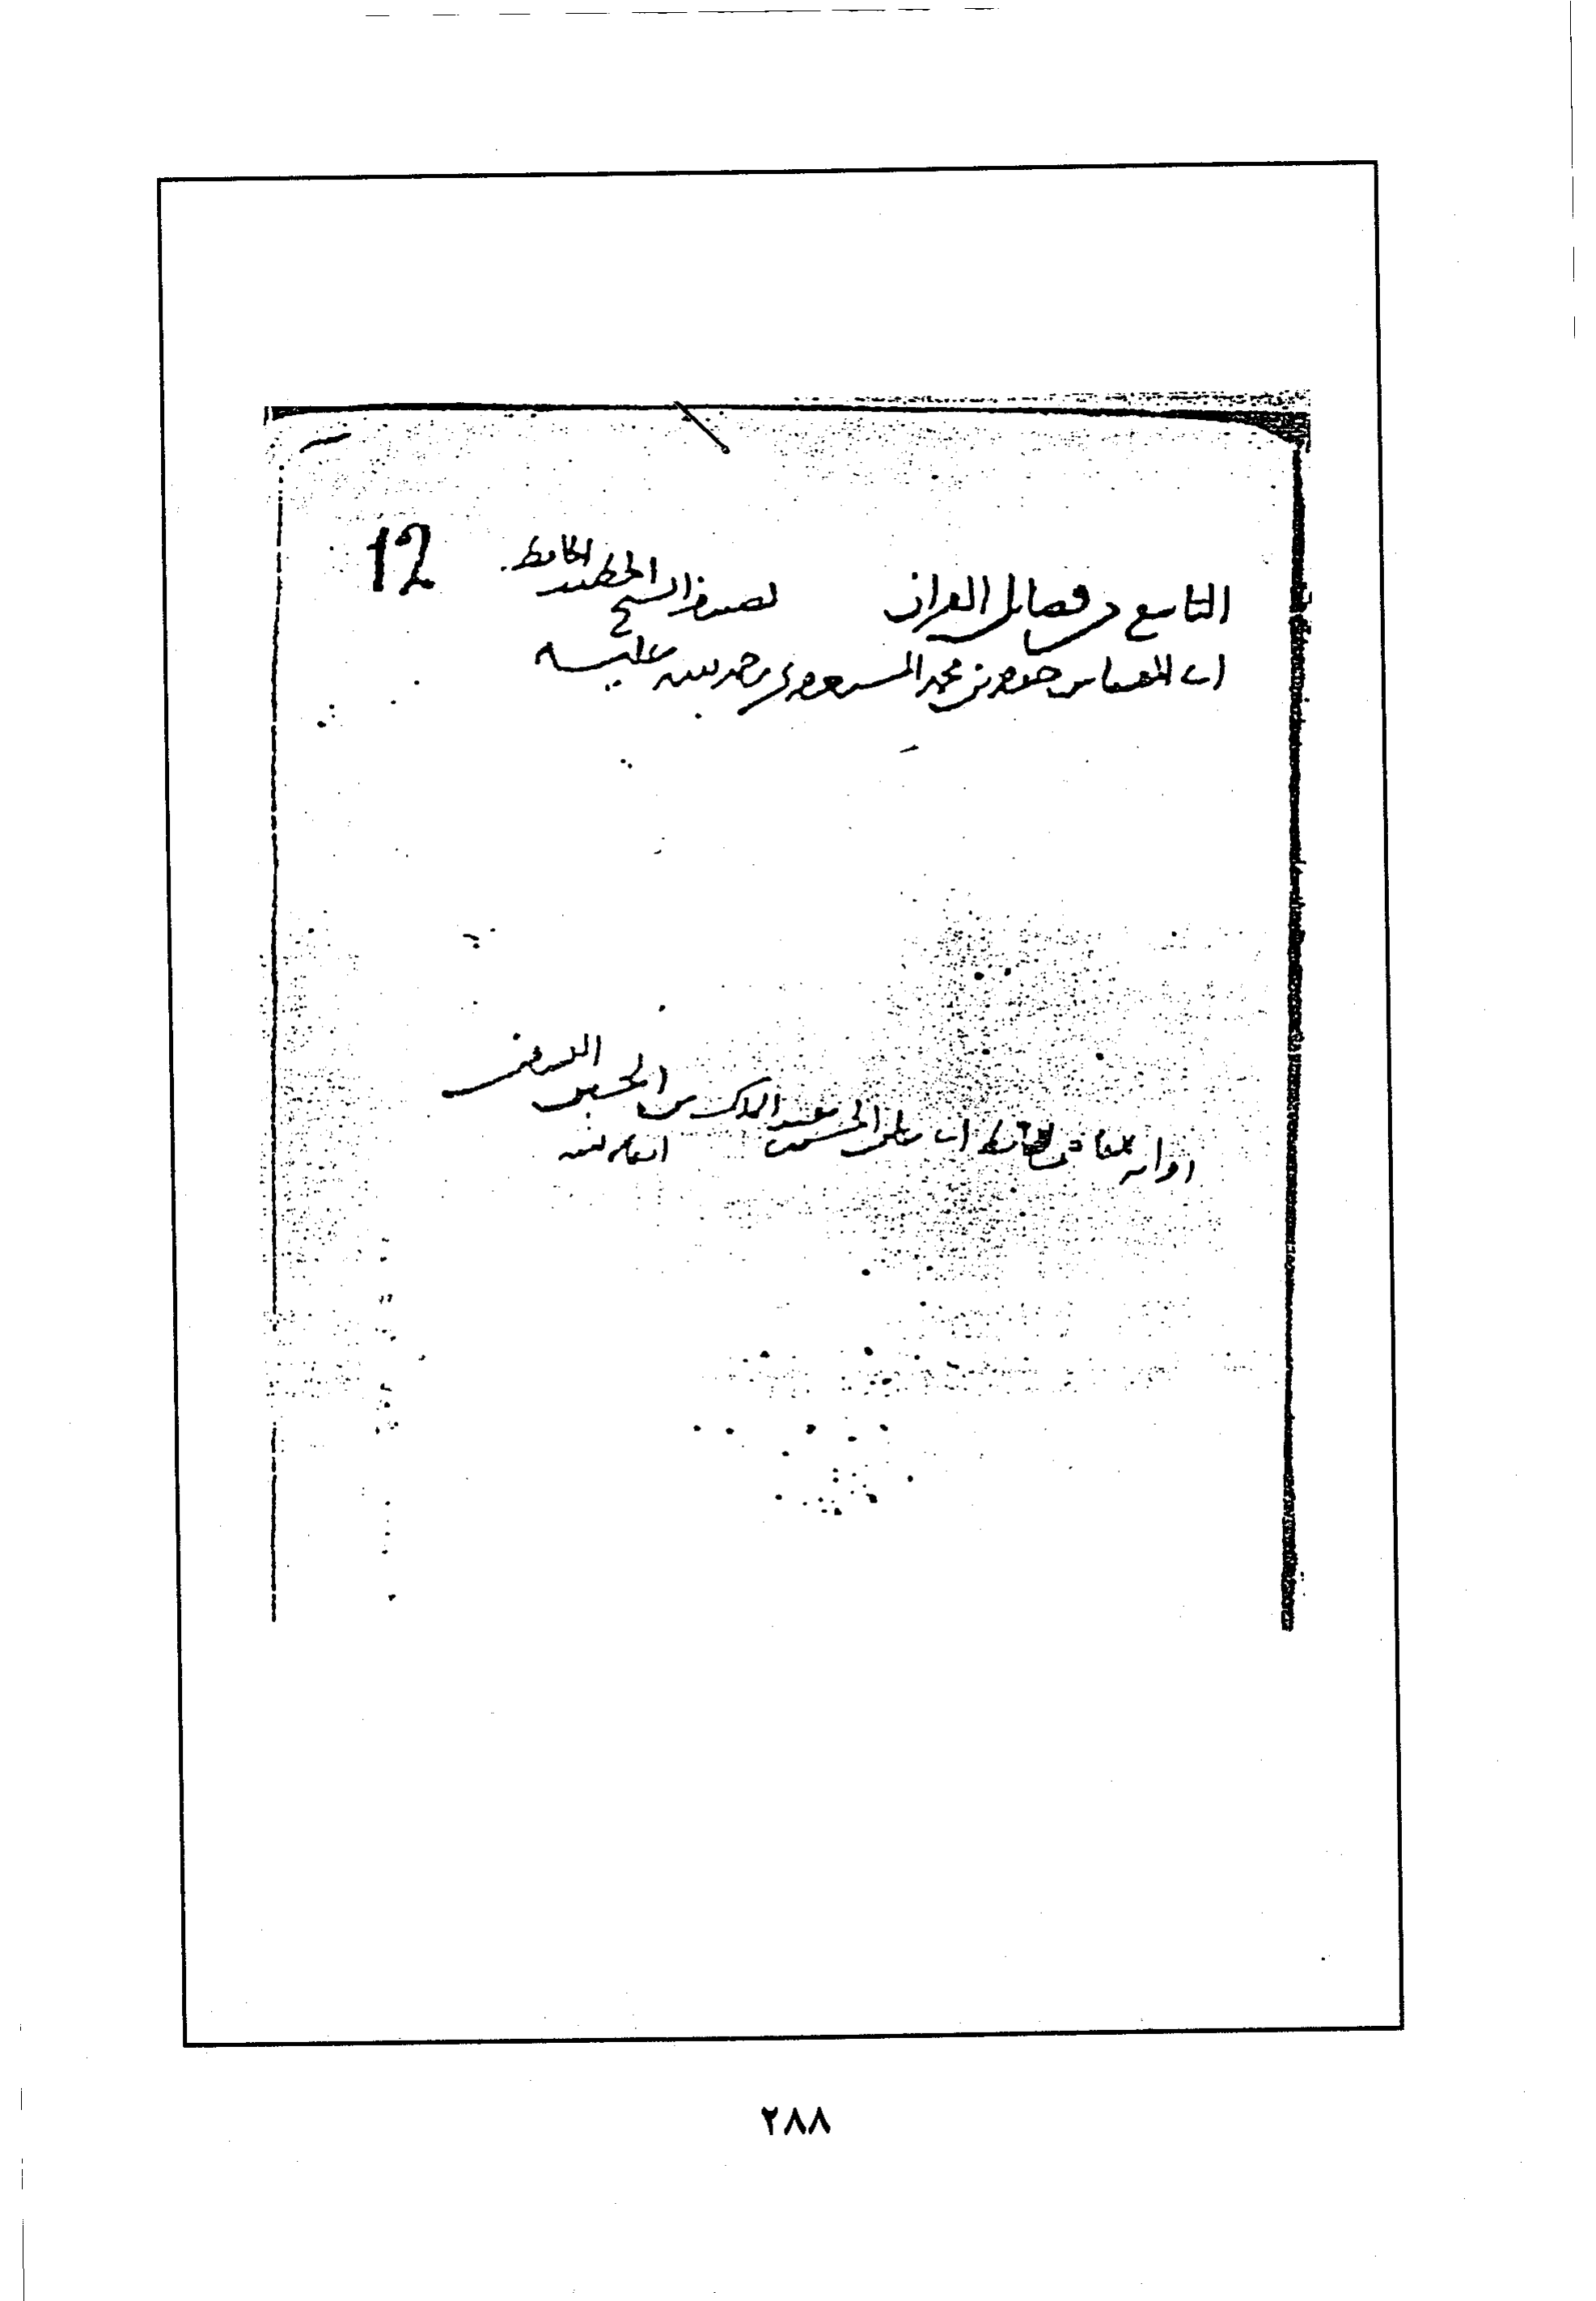 12
التاسع من فضائل القران تصنيف الشيخ الخطيب الحافظ
ابي العباس جعفر بن محمد المستغفري رحمه الله عليه
رواية القاضي الحافظ ابي علي الحسن بن عبد الملك بن الحسين النسفي
ابقاه الله
٢٨٨